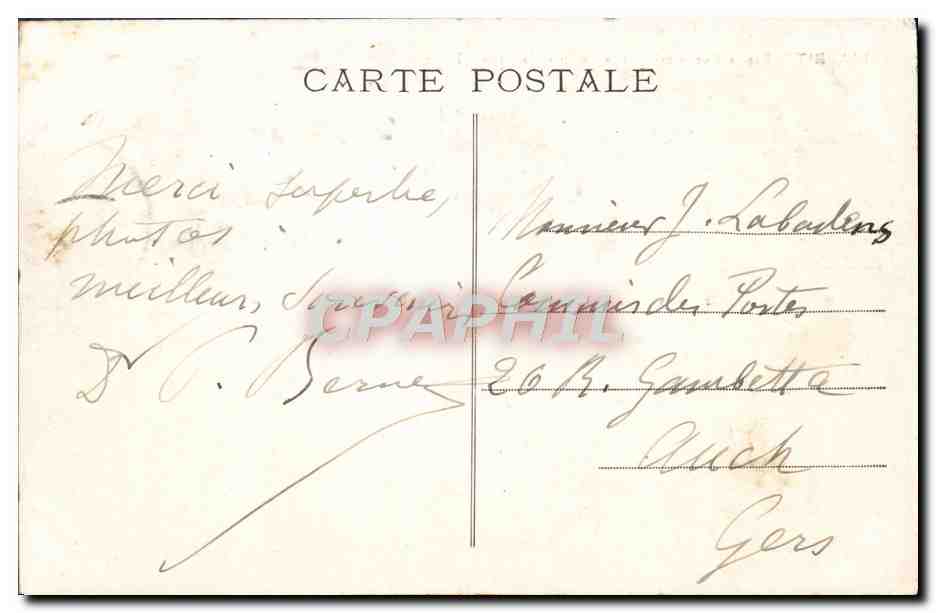 CARTE POSTALE
Merci superbe,
photos.
meilleurs souvenirs
Dr P. Berne
Monsieur J. Labadens
Commis des Postes
26 R. Gambetta
Auch
Gers
CPAPHIL